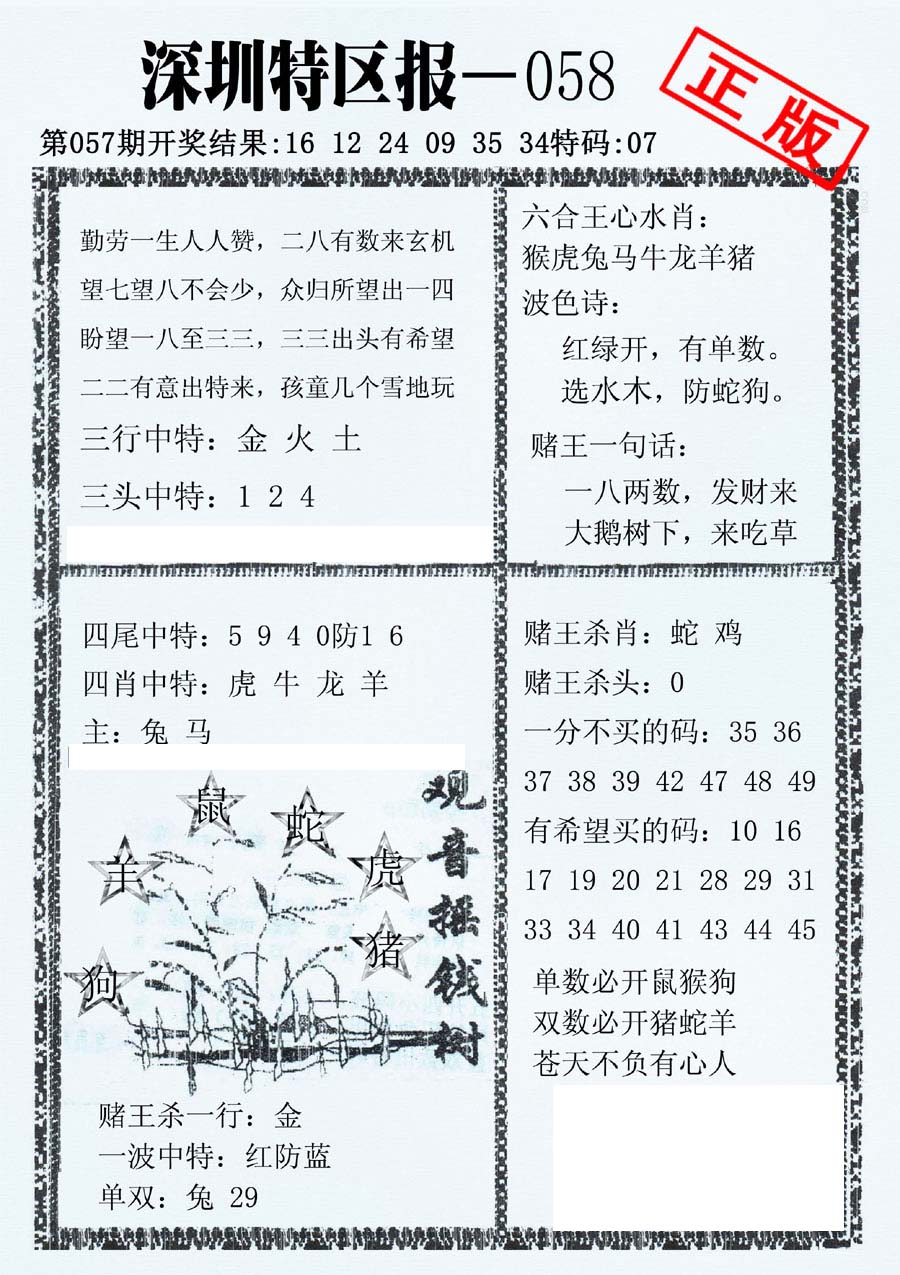 深圳特区报—058
正版
第057期开奖结果:16 12 24 09 35 34特码:07
勤劳一生人人赞，二八有数来玄机
望七望八不会少，众归所望出一四
盼望一八至三三，三三出头有希望
二二有意出特来，孩童几个雪地玩
三行中特：金 火 土
三头中特：1 2 4
六合王心水肖：
猴虎兔马牛龙羊猪
波色诗：
红绿开，有单数。
选水木，防蛇狗。
赌王一句话：
一八两数，发财来
大鹅树下，来吃草
四尾中特：5 9 4 0防1 6
四肖中特：虎 牛 龙 羊
主：兔 马
鼠
蛇
羊
虎
猪
狗
观音摇钱树
赌王杀一行：金
一波中特：红防蓝
单双：兔 29
赌王杀肖：蛇 鸡
赌王杀头：0
一分不买的码：35 36
37 38 39 42 47 48 49
有希望买的码：10 16
17 19 20 21 28 29 31
33 34 40 41 43 44 45
单数必开鼠猴狗
双数必开猪蛇羊
苍天不负有心人